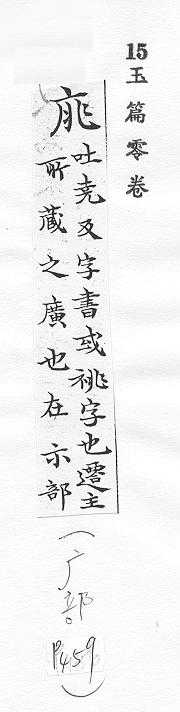 15玉篇零卷
庣
吐尭及字書或祧字也遷主
所藏之廣也在示部
(广部
P459)